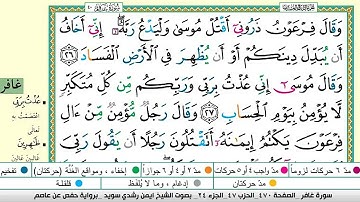 وَقَالَ فِرْعَوْنُ ذَرُونِىٓ أَقْتُلْ مُوسَىٰ وَلْيَدْعُ رَبَّهُۥٓ ۖ إِنِّىٓ أَخَافُ
أَن يُبَدِّلَ دِينَكُمْ أَوْ أَن يُظْهِرَ فِى ٱلْأَرْضِ ٱلْفَسَادَ ٢٦
وَقَالَ مُوسَىٰٓ إِنِّى عُذْتُ بِرَبِّى وَرَبِّكُم مِّن كُلِّ مُتَكَبِّرٍ
لَّا يُؤْمِنُ بِيَوْمِ ٱلْحِسَابِ ٢٧ وَقَالَ رَجُلٌ مُّؤْمِنٌ مِّنْ ءَالِ
فِرْعَوْنَ يَكْتُمُ إِيمَـٰنَهُۥٓ أَتَقْتُلُونَ رَجُلًا أَن يَقُولَ رَبِّىَ
غافر
عُذْتُ بِرَبِّي
اعتصمت به
تعالى
ظَـٰهِرِينَ
غالبين عالين
مدّ ٦ حركات لزوماً
مدّ ٢ أو ٤ أو ٦ جوازاً
مدّ واجب ٤ أو ٥ حركات
مدّ حركتان
إخفاء، ومواقع الغُنَّة (حركتان)
إدغام، وما لا يُلفَظ
تفخيم
قلقلة
سورة غافر _ الصفحة ٤٧٠ _ الحزب ٤٧ _ الجزء ٢٤ _ بصوت الشيخ أيمن رشدي سويد _ برواية حفص عن عاصم